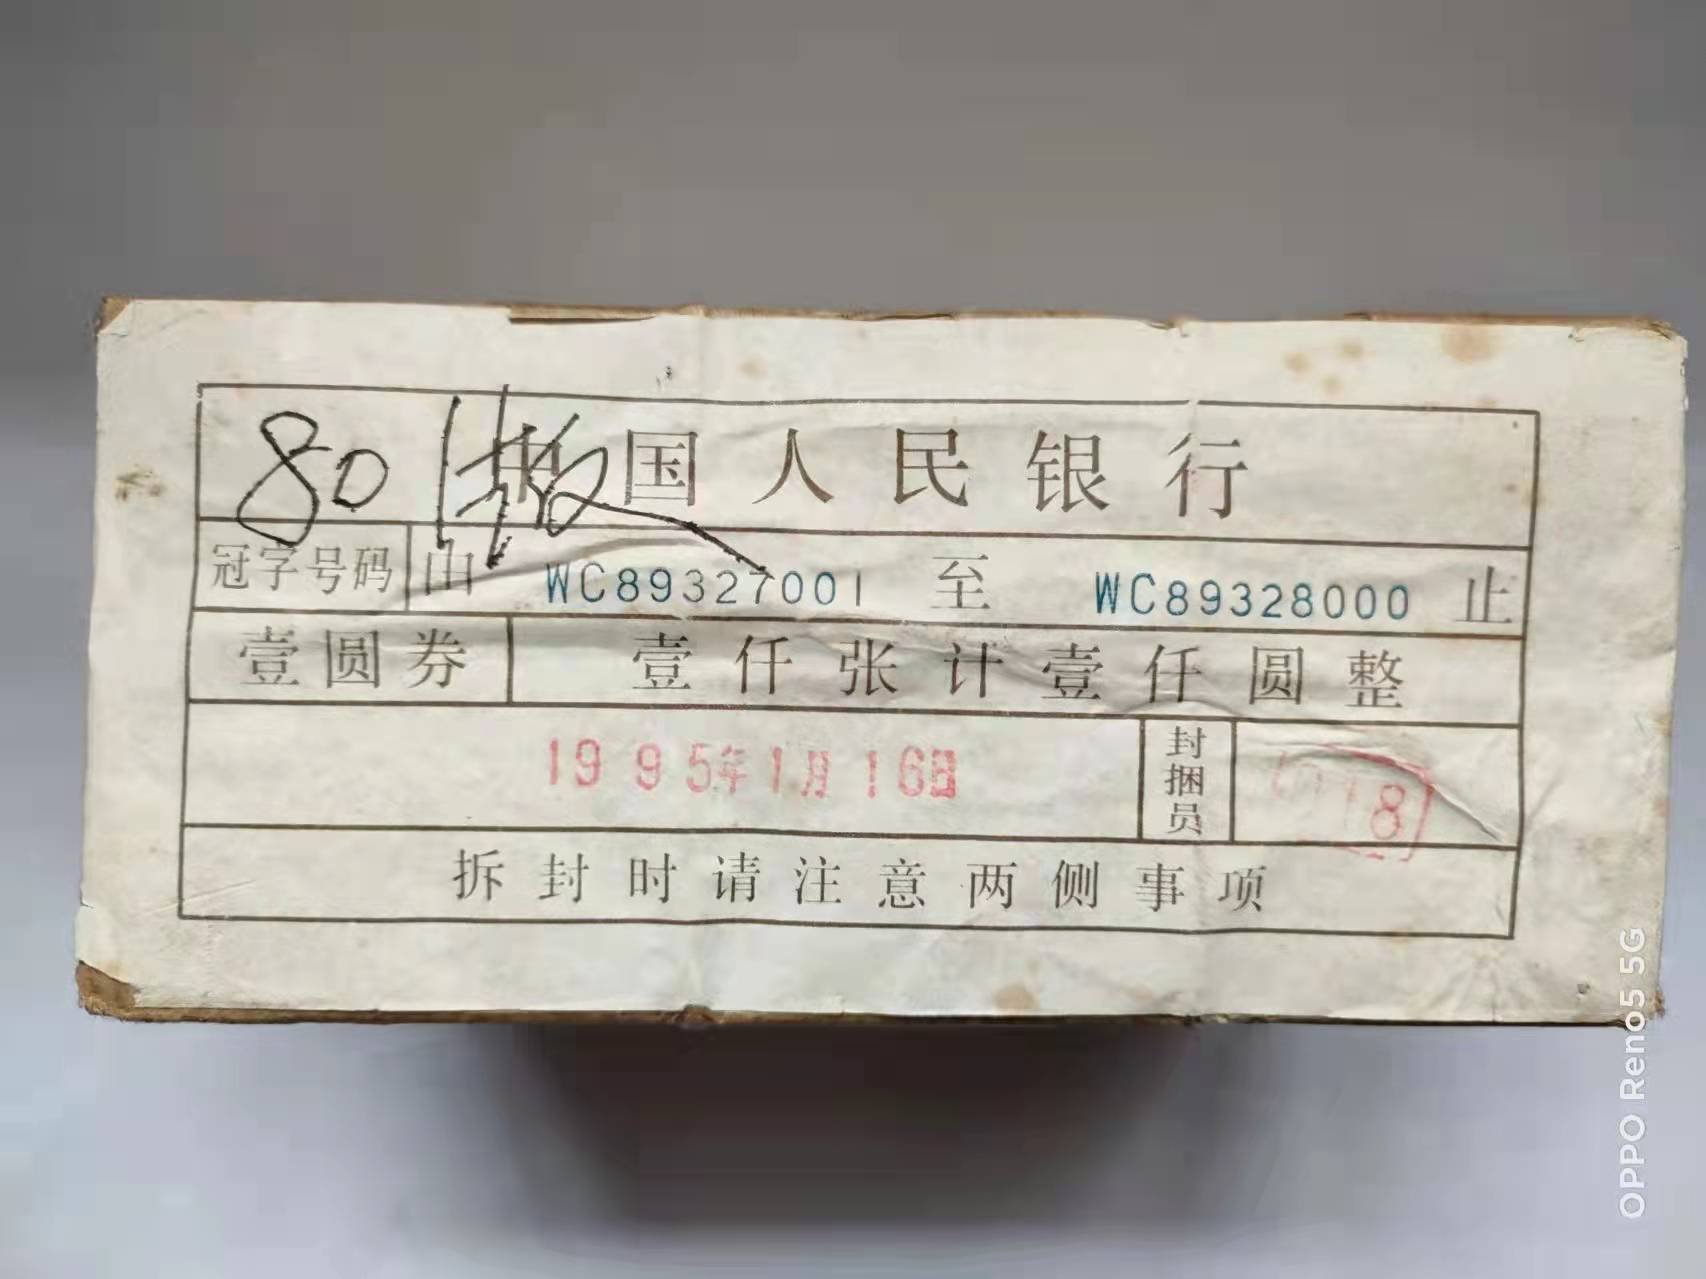 80版
中国人民银行
冠字号码 由 WC89327001 至 WC89328000 止
壹圆券 壹仟张计壹仟圆整
1995年1月16日 封捆员 18
拆封时请注意两侧事项
OPPO Reno5 5G